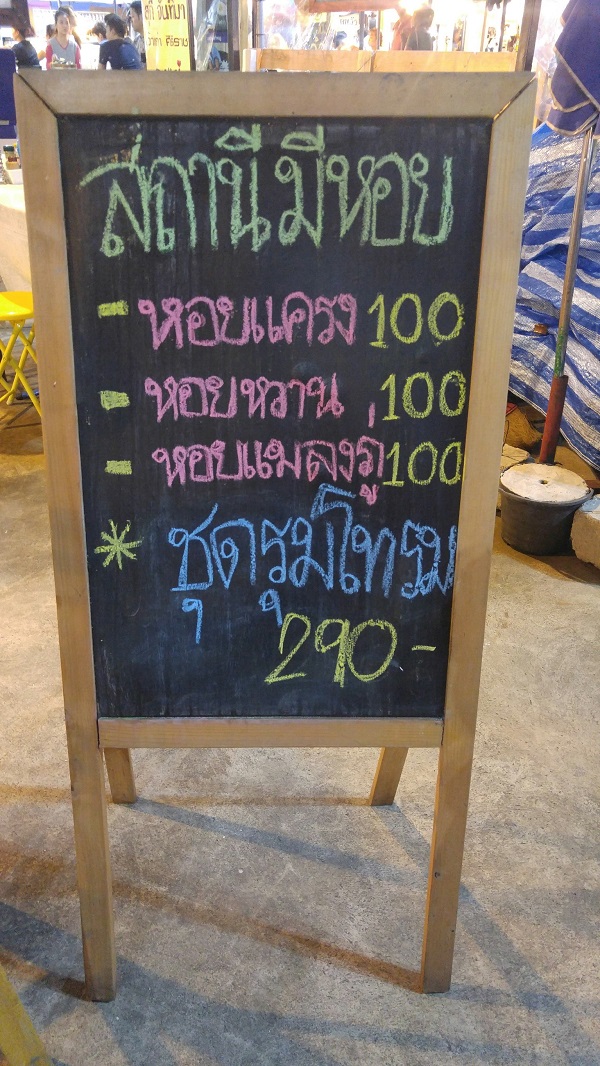 สถานีมีหอย
- หอยแครง 100
- หอยหวาน 100
- หอยแมลงภู่ 100
* ชุดรุมโทรม
290-